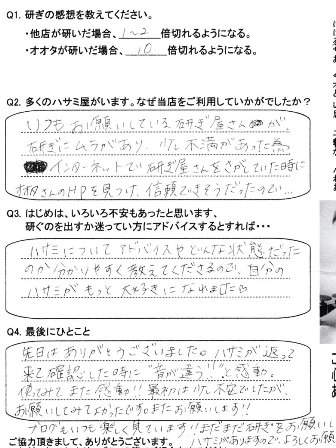 Q1. 研ぎの感想を教えてください。
・他店が研いだ場合、1~2 倍切れるようになる。
・オオタが研いだ場合、10 倍切れるようになる。
Q2. 多くのハサミ屋がいます。なぜ当店をご利用していかがでしたか?
いつもお願いしている研ぎ屋さんが、
研ぎにムラがあり、少し不満があった為
インターネットで研ぎ屋さんをさがしていた時に
さんのHPを見つけ、信頼できそうだったので…
Q3. はじめは、いろいろ不安もあったと思います、
研ぐのを出すか迷っている方にアドバイスするとすれば・・・
ハサミについてアドバイスやどんな状態だった
のか分かりやすく教えてくださるので、自分の
ハサミがもっと大好きになれました♡
Q4. 最後にひとこと
先日はありがとうございました。ハサミが返って
来て確認した時に"音が違う!!"と感動。
使ってみてまた感動!! 最初は少し不安でしたが、
お願いしてみてよかったです。またお願いします!!
ブログもいつも楽しく見ています!まだまだ研ぎをお願いしたい
ご協力頂きまして、ありがとうございます。 ハサミがありますので、よろしくお願い